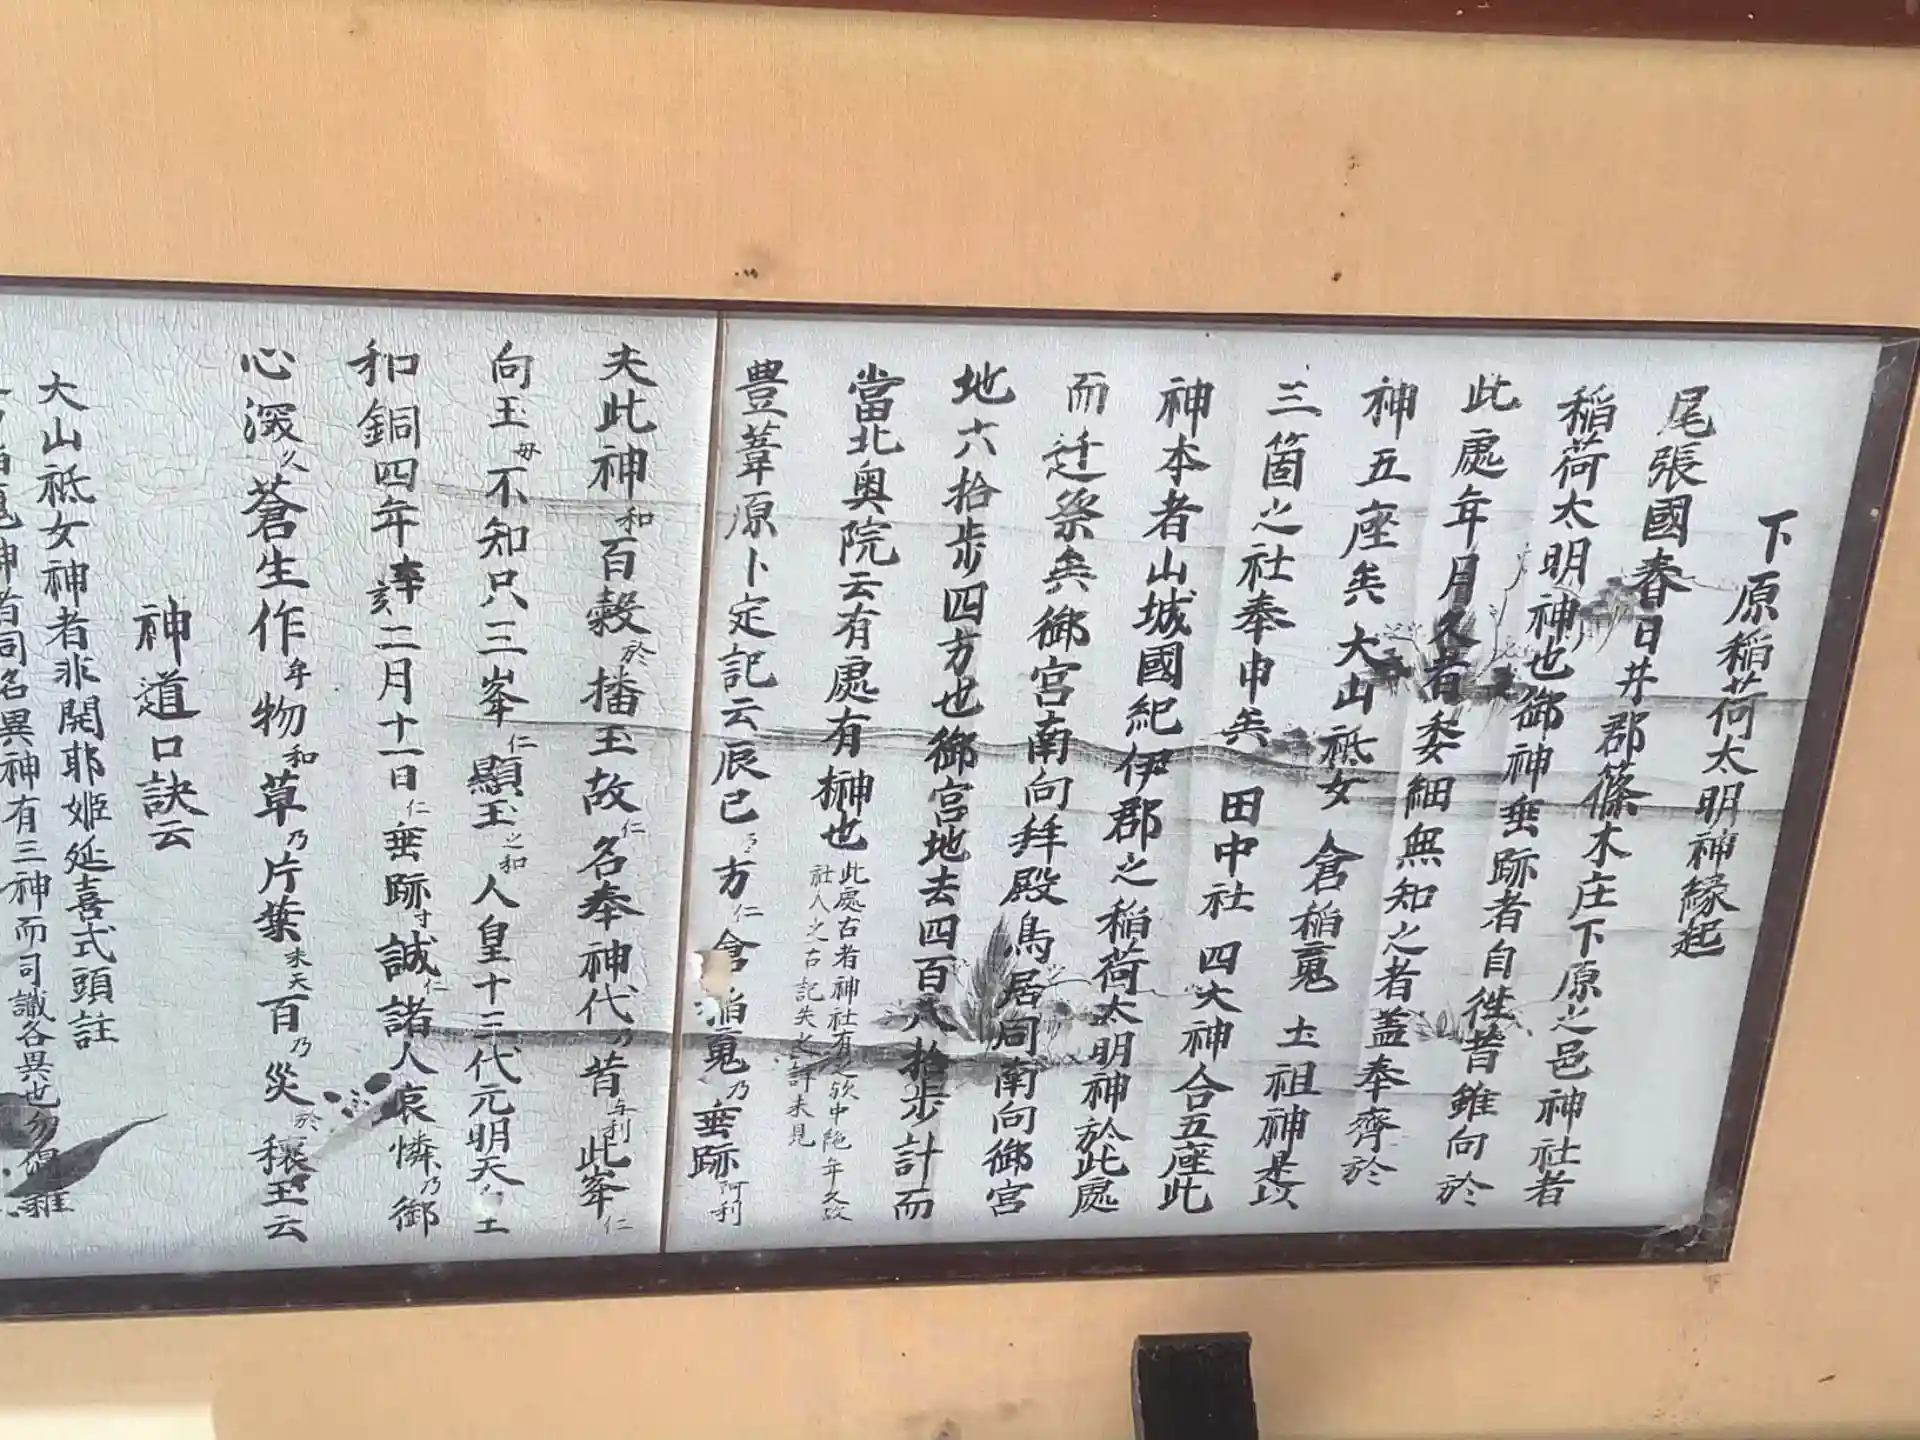 下原稲荷太明神縁起
尾張國春日井郡篠木庄下原之邑神社者
稲荷太明神也御神垂跡者自徃昔雖向於
此處年月久者委細無知之者蓋奉齊於
神五座矣大山祗女倉稲䰠土祖神是以
三箇之社奉申矣田中社四大神合五座此
神本者山城國紀伊郡之稲荷太明神於此處
而迁祭矣御宮南向拜殿鳥居同南向御宮
地六拾歩四方也御宮地去四百八拾歩計而
當北奥院云有處有榊也
此處古者神社有之欤中絶年久故
社人之古記失之許未見
豊葦原卜定記云辰巳乃方仁倉稲䰠乃垂跡阿利
夫此神和百穀於播玉故仁名奉神代乃昔与利此峯仁
向玉毋不知只三峯仁顯玉之和人皇十三代元明天
和銅四年辛亥二月十一日仁垂跡寸誠仁諸人哀憐乃御
心深久蒼生作牟物和草乃片葉末天百乃災於穰玉云
神道口訣云
大山祗女神者非開耶姫延喜式頭註
神者同名異神有三神而司識各異也勿混雜